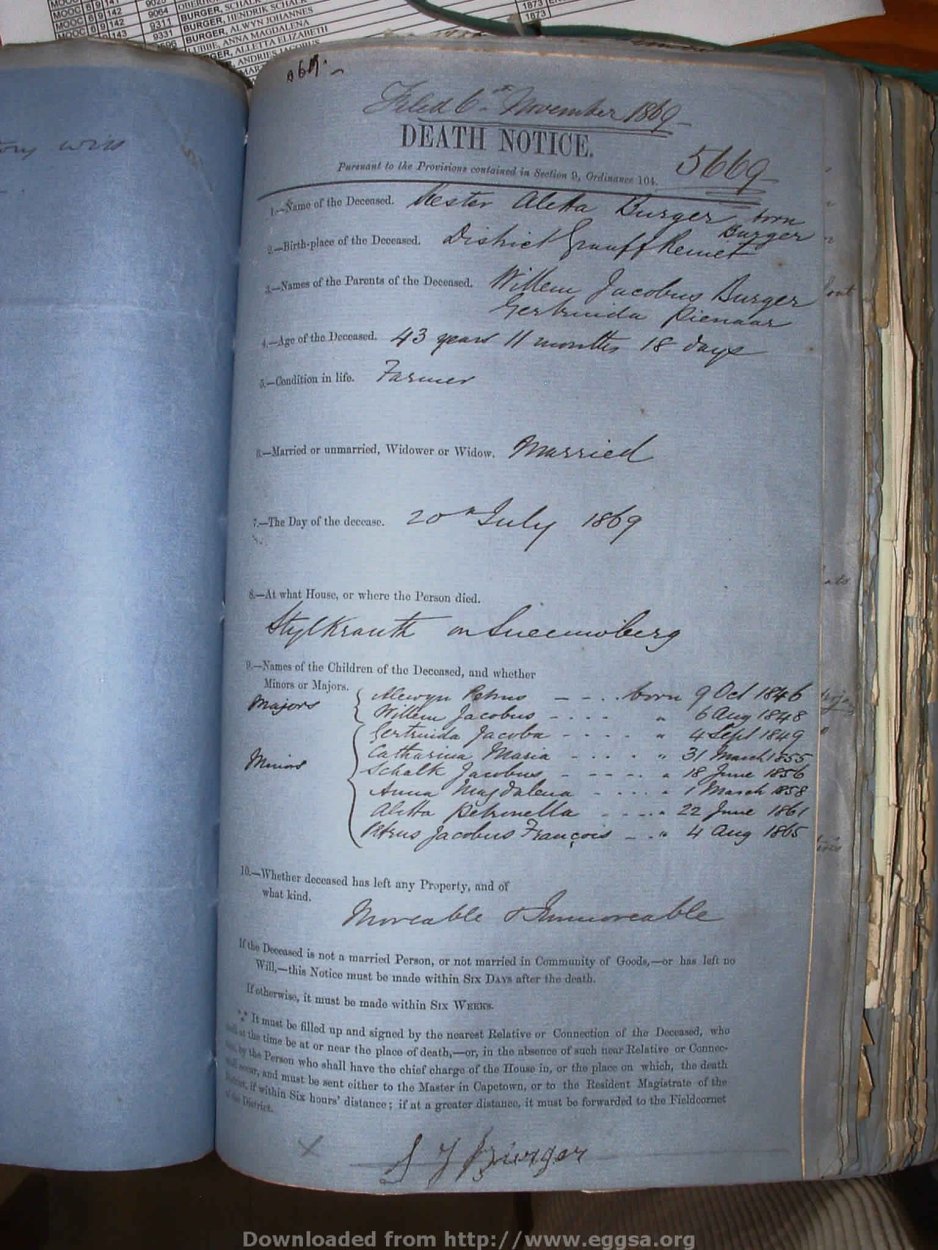 MOOC 6/9/141
MOOC 6/9/142 9064 BURGER, SCHALK
6/9/142 9311 BURGER, HENDRIK SCHALK
143 9331 BURGER, ALWYN JOHANNES
UBBE, ANNA MAGDALENA
BURGER, ALLETTA ELIZABETH
ANDRIES JACOBUS
1873
1873
Filed 6th November 1869
DEATH NOTICE.
Pursuant to the Provisions contained in Section 9, Ordinance 104.
5669
1.—Name of the Deceased. Hester Aletta Burger born
Burger
2.—Birth-place of the Deceased. District Graaff Reinet
3.—Names of the Parents of the Deceased. Willem Jacobus Burger
Gertruida Pienaar
4.—Age of the Deceased. 43 years 11 months 18 days
5.—Condition in life. Farmer
6.—Married or unmarried, Widower or Widow. Married
7.—The Day of the decease. 20th July 1869
8.—At what House, or where the Person died.
Stylkranth on Sneeuwberg
9.—Names of the Children of the Deceased, and whether
Minors or Majors.
Majors
Alewyn Petrus - - . . born 9 Oct 1846
Willem Jacobus - . . . " 6 Aug 1848
Minors
Gertruida Jacoba - . . . " 4 Sept 1849
Catharina Maria - - . . " 31 March 1855
Schalk Jacobus - - - . " 18 June 1856
Anna Magdalena - . . . " 1 March 1858
Aletta Petronella - . . " 22 June 1861
Petrus Jacobus François - . " 4 Aug 1865
10.—Whether deceased has left any Property, and of
what kind.
Moveable & Immoveable
If the Deceased is not a married Person, or not married in Community of Goods,—or has left no
Will,—this Notice must be made within SIX DAYS after the death.
If otherwise, it must be made within SIX WEEKS.
*** It must be filled up and signed by the nearest Relative or Connection of the Deceased, who
shall at the time be at or near the place of death,—or, in the absence of such near Relative or Connec-
tion, by the Person who shall have the chief charge of the House in, or the place on which, the death
shall occur, and must be sent either to the Master in Capetown, or to the Resident Magistrate of the
District, if within Six hours' distance; if at a greater distance, it must be forwarded to the Fieldcornet
of the District.
X S J Burger
Downloaded from http://www.eggsa.org